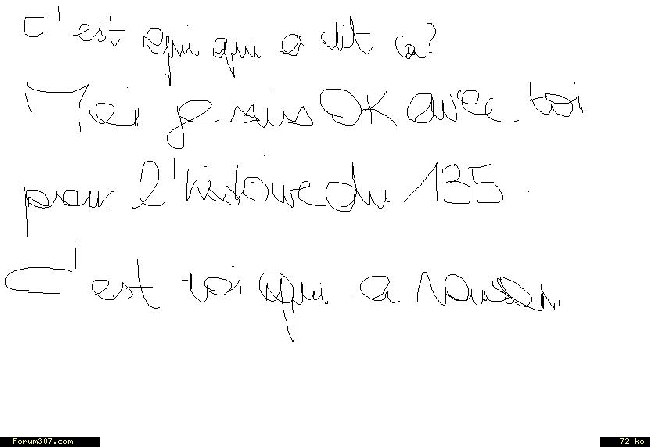 C'est qui qui a dit ça?
Moi je suis OK avec toi
pour l'histoire du 135.
C'est toi qui a raison.
Forum307.com
72 ko